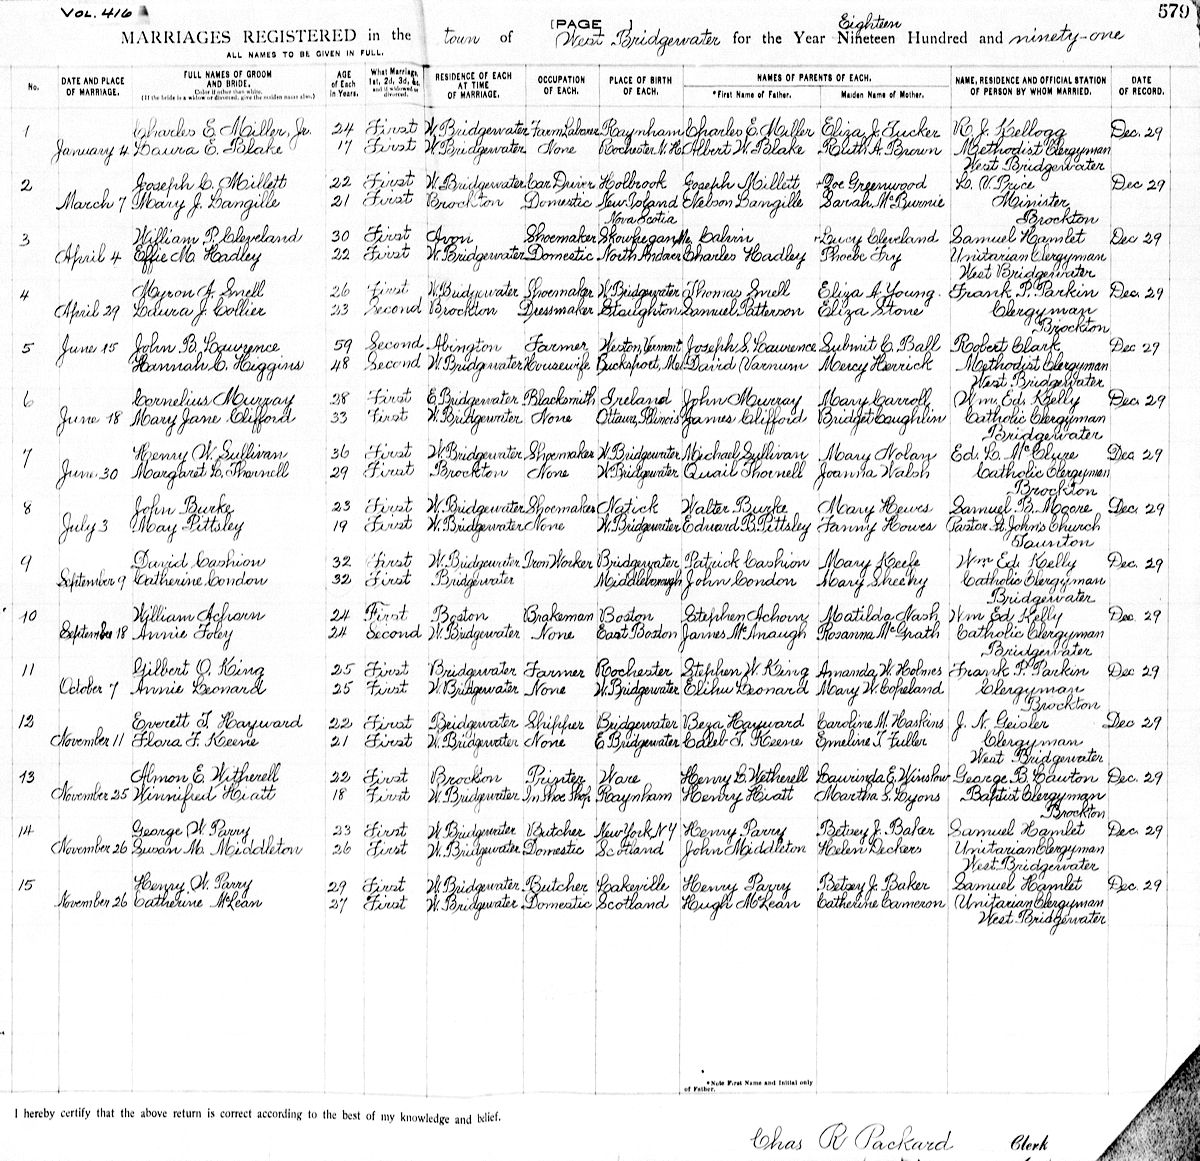 VOL. 416
[PAGE ]
579
MARRIAGES REGISTERED in the town of West Bridgewater for the Year Eighteen Nineteen Hundred and ninety-one
ALL NAMES TO BE GIVEN IN FULL.
No. DATE AND PLACE OF MARRIAGE. FULL NAMES OF GROOM AND BRIDE. Color if other than white. (If the bride is a widow or divorced, give the maiden name also.) AGE of Each in Years. What Marriage, 1st, 2d, 3d, &c. and if widowed or divorced. RESIDENCE OF EACH AT TIME OF MARRIAGE. OCCUPATION OF EACH. PLACE OF BIRTH OF EACH. NAMES OF PARENTS OF EACH. *First Name of Father. Maiden Name of Mother. NAME, RESIDENCE AND OFFICIAL STATION OF PERSON BY WHOM MARRIED. DATE OF RECORD.
1 Charles E. Miller, Jr. 24 First W. Bridgewater Farm Laborer Raynham Charles E. Miller Eliza J. Tucker R. J. Kellogg Dec. 29
January 4 Laura E. Blake 17 First W. Bridgewater None Rochester N.H. Albert W. Blake Ruth A. Brown Methodist Clergyman
West Bridgewater
2 Joseph C. Millett 22 First W. Bridgewater Car Driver Holbrook Joseph Millett Zoe Greenwood L. V. Price Dec 29
March 7 Mary J. Langille 21 First Brockton Domestic New Island Nelson Langille Sarah McBurnie Minister
Nova Scotia Brockton
3 William P. Cleveland 30 First Avon Shoemaker Skowhegan Me. Calvin Lucy Cleveland Samuel Hamlet Dec 29
April 4 Effie M. Hadley 22 First W. Bridgewater Domestic North Andover Charles Hadley Phoebe Fry Unitarian Clergyman
West Bridgewater
4 Myron A. Snell 26 First W. Bridgewater Shoemaker W. Bridgewater Thomas Snell Eliza A. Young. Frank P. Parkin Dec. 29
April 29 Laura J. Collier 33 Second Brockton Dressmaker Stoughton Samuel Patterson Eliza Stone Clergyman
Brockton
5 John B. Lawrence 59 Second Abington Farmer Weston, Vermont Joseph S. Lawrence Submit C. Ball Robert Clark Dec 29
June 15 Hannah C. Higgins 48 Second W. Bridgewater Housewife Bucksport, Me. David Varnum Mercy Herrick Methodist Clergyman
West Bridgewater
6 Cornelius Murray 38 First E. Bridgewater Blacksmith Ireland John Murray Mary Carroll Wm. Ed. Kelly Dec. 29
June 18 Mary Jane Clifford 33 First W. Bridgewater None Ottawa, Illinois James Clifford Bridget Coughlin Catholic Clergyman
Bridgewater
7 Henry W. Sullivan 36 First W. Bridgewater Shoemaker W. Bridgewater Michael Sullivan Mary Nolan Ed. L. McClure Dec 29
June 30 Margaret L. Thornell 29 First Brockton None W. Bridgewater Quail Thornell Joanna Walsh Catholic Clergyman
Brockton
8 John Burke 23 First W. Bridgewater Shoemaker Natick Walter Burke Mary Hewes Samuel B. Moore Dec. 29
July 3 May Pittsley 19 First W. Bridgewater None W. Bridgewater Edward B. Pittsley Fanny Howes Pastor St. John's Church
Taunton
9 David Cashion 32 First W. Bridgewater Iron Worker Bridgewater Patrick Cashion Mary Keefe Wm. Ed. Kelly Dec. 29
September 9 Catherine Condon 32 First Bridgewater Middleborough John Condon Mary Sheehy Catholic Clergyman
Bridgewater
10 William Achorn 24 First Boston Brakeman Boston Stephen Achorn Matilda Nash Wm Ed. Kelly Dec. 29
September 18 Annie Foley 24 Second W. Bridgewater None East Boston James McAnaugh Rosanna McGrath Catholic Clergyman
Bridgewater
11 Gilbert O. King 25 First Bridgewater Farmer Rochester Stephen W. King Amanda W. Holmes Frank P. Parkin Dec 29
October 7 Annie Leonard 25 First W. Bridgewater None W. Bridgewater Elihu Leonard Mary W. Copeland Clergyman
Brockton
12 Everett T. Hayward 22 First Bridgewater Shipper Bridgewater Beza Hayward Caroline M. Haskins J. N. Geisler Dec 29
November 11 Flora F. Keene 21 First W. Bridgewater None E Bridgewater Caleb T. Keene Emeline T. Fuller Clergyman
West Bridgewater
13 Almon E. Witherell 22 First Brockton Printer Ware Henry L. Wetherell Laurinda E. Winslow George B. Lawton Dec. 29
November 25 Winnifred Hiatt 18 First W. Bridgewater In Shoe Shop Raynham Henry Hiatt Martha S. Lyons Baptist Clergyman
Brockton
14 George W. Parry 33 First W. Bridgewater Butcher New York NY Henry Parry Betsey J. Baker Samuel Hamlet Dec. 29
November 26 Susan M. Middleton 26 First W. Bridgewater Domestic Scotland John Middleton Helen Deckers Unitarian Clergyman
West Bridgewater
15 Henry W. Parry 29 First W. Bridgewater Butcher Lakeville Henry Parry Betsey J. Baker Samuel Hamlet Dec. 29
November 26 Catherine McLean 27 First W. Bridgewater Domestic Scotland Hugh McLean Catherine Cameron Unitarian Clergyman
West Bridgewater
*Note First Name and Initial only of Father.
I hereby certify that the above return is correct according to the best of my knowledge and belief.
Chas R Packard Clerk